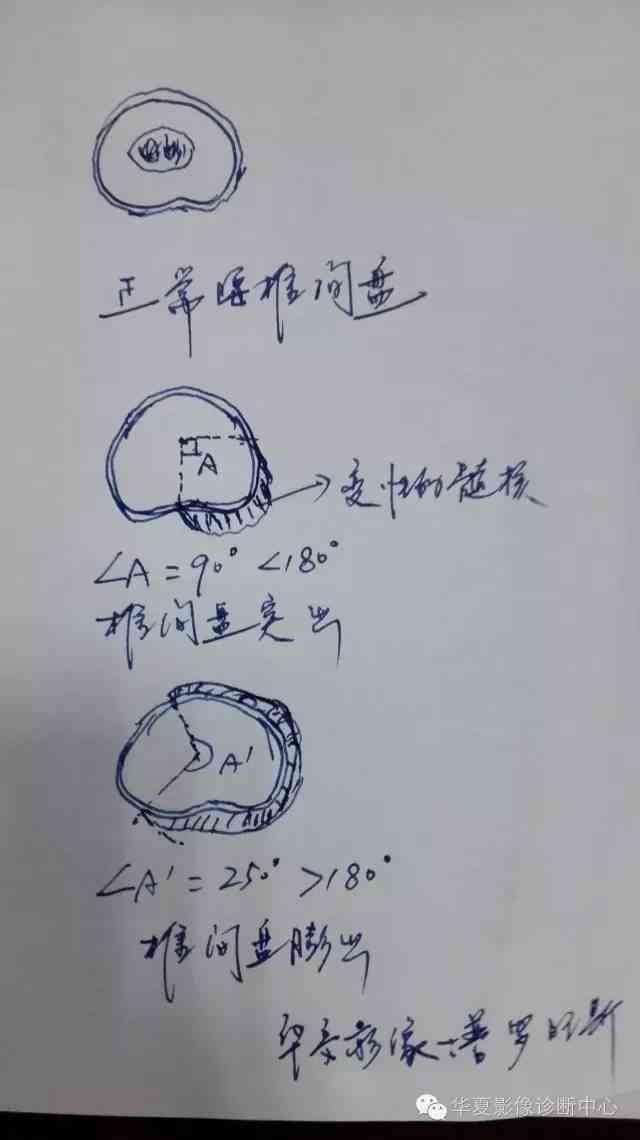 髓核
正常腰椎间盘
A
变性的髓核
∠A=90°<180°
椎间盘突出
A'
∠A'=250°>180°
椎间盘膨出
华夏影像-普罗旺斯
华夏影像诊断中心